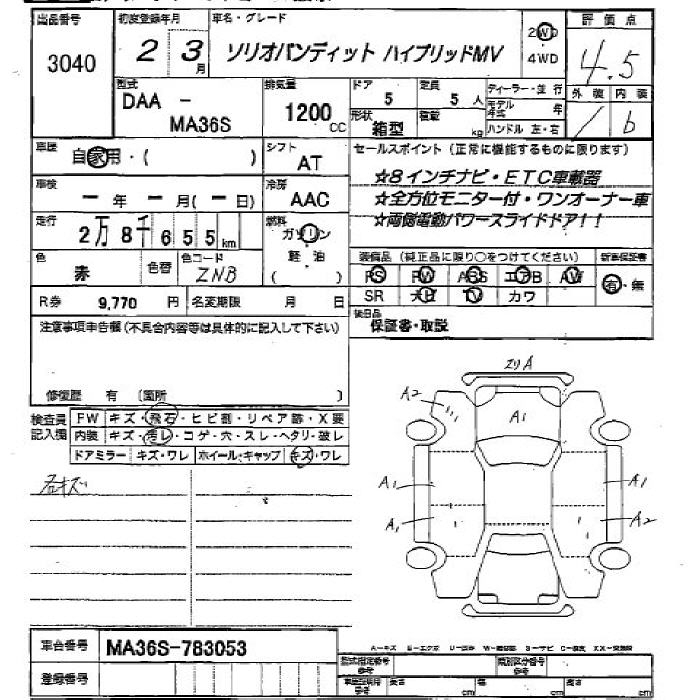 出品番号 初度登録年月 車名・グレード 評価点
3040 2 3月 ソリオバンディット ハイブリッドMV 2WD 4WD 4.5
型式 排気量 ドア 定員 ディーラー・並行 外装 内装
DAA - MA36S 1200cc 5 5人 モデル年式 年 / b
形状 積載
箱型 kg ハンドル 左・右
車歴 自家用・( ) シフト AT セールスポイント(正常に機能するものに限ります)
☆8インチナビ・ETC車載器
車検 ー年ー月(ー日) 冷房 AAC ☆全方位モニター付・ワンオーナー車
☆両側電動パワースライドドア!!
走行 2万8千655km 燃料 ガソリン
軽・油
( )
色 赤 色替 色コード ZNB
装備品(純正品に限り○をつけてください) 新車保証書
PS PW ABS エアB AW 有・無
SR ナビ TV カワ
R券 9,770円 名変期限 月 日
後日品
保証書・取説
注意事項申告欄(不具合内容等は具体的に記入して下さい)
修復歴 有 〔箇所 〕
検査員記入欄 FW キズ・飛石・ヒビ割・リペア跡・X要
内装 キズ・汚レ・コゲ・穴・スレ・ヘタリ・破レ
ドアミラー キズ・ワレ ホイール・キャップ キズ・ワレ
A2 A1
A1 A1
A1 A2
車台番号 MA36S-783053
登録番号
A-キズ E-エクボ
型式指定番号 類別区分番号
参考 参考
長さ cm 幅 cm 高さ cm